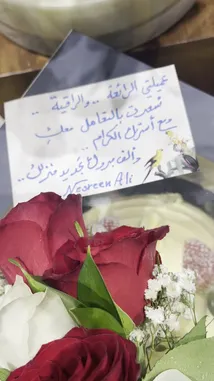 عميلتي الرائعة .. والراقية ..
تشرفت بالتعامل معك
مع أسرتك الكرام ..
وألف مبروك تجديد منزلك ..
Nesreen Ali